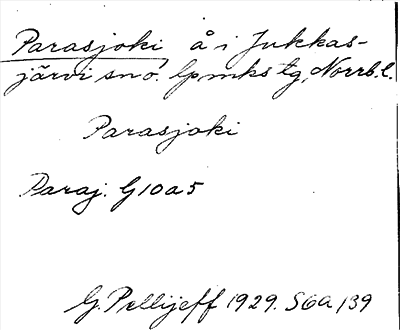 Parasjoki å i Jukkas-
järvi sn o. lpmks tg, Norrb. l.
Parasjoki
Paraj. G10a5
G. Pellijeff 1929. S6a 139